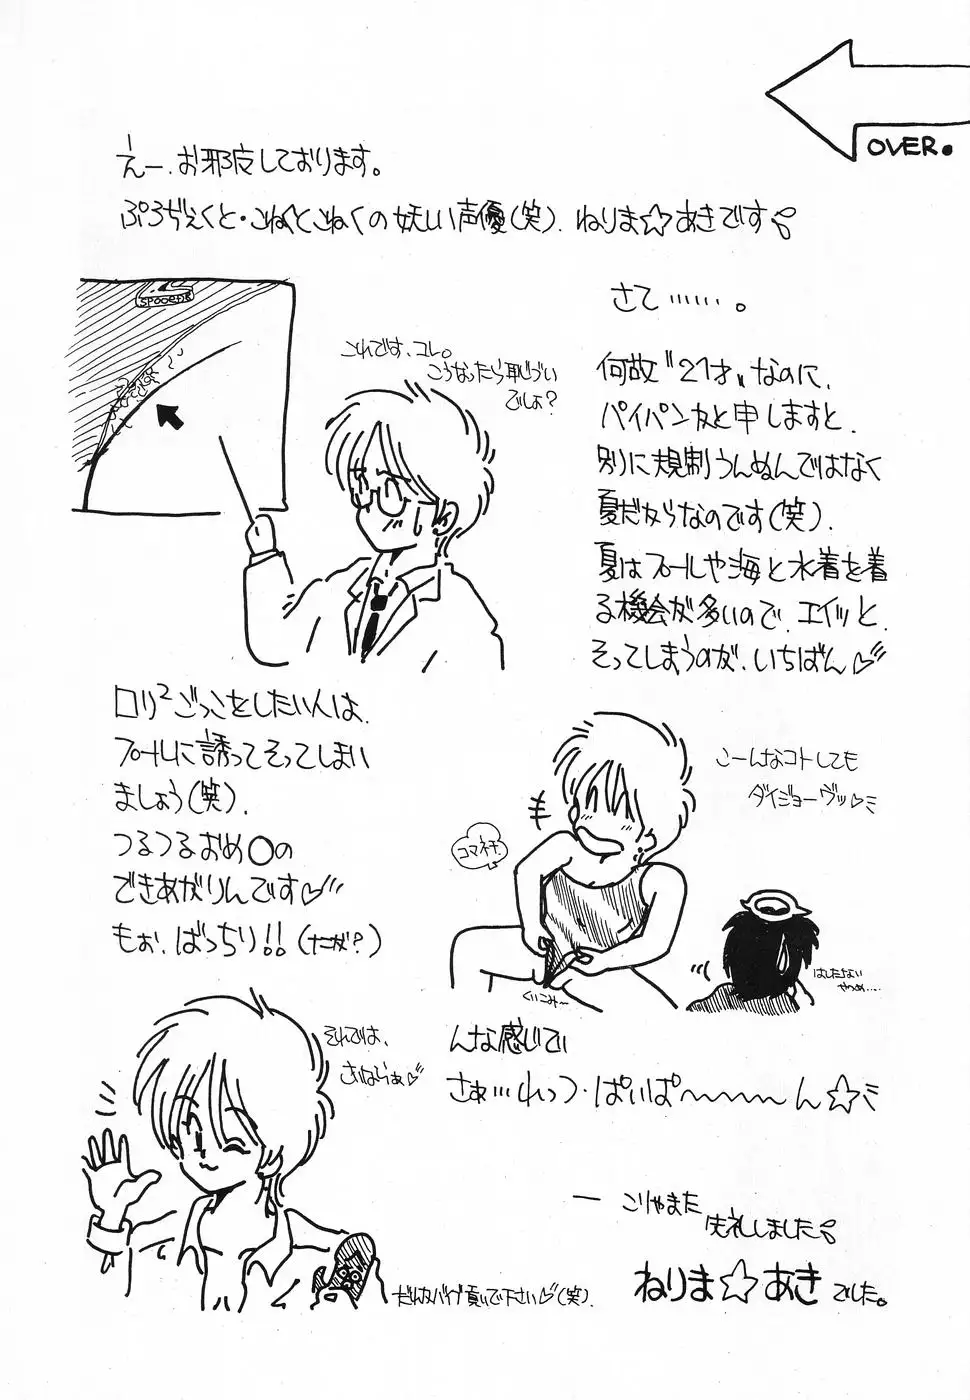 OVER.
えー、お邪魔しております。
ぷろぢぇくと・こねくとこねくの妖しい声優(笑)、ねりま☆あきです♪
さて……。
これでは、コレ。
こうなったら恥しい
でしょ?
何故“21才”なのに、
パイパンかと申しますと、
別に規制うんぬんではなく
夏だからなのです(笑)。
夏はプールや海と水着を着
る機会が多いので、エイッと、
そってしまうのが、いちばん♡
ロリ²ごっこをしたい人は、
プールに誘ってそってしまい
ましょう(笑)。
つるつるおめ○の
できあがりんです♡
もぉ、ばっちり!!(なにが?)
こーんなコトしても
ダイジョーヴッ♡
コマネチ
くいこみ〜
はしたない
やつめ…
んな感じで
さぁ…れっつ・ぱいぱ〜〜〜ん☆
それでは、
さいならぁ♡
ー ごりゃまた
失礼しました♪
ねりま☆あき でした。